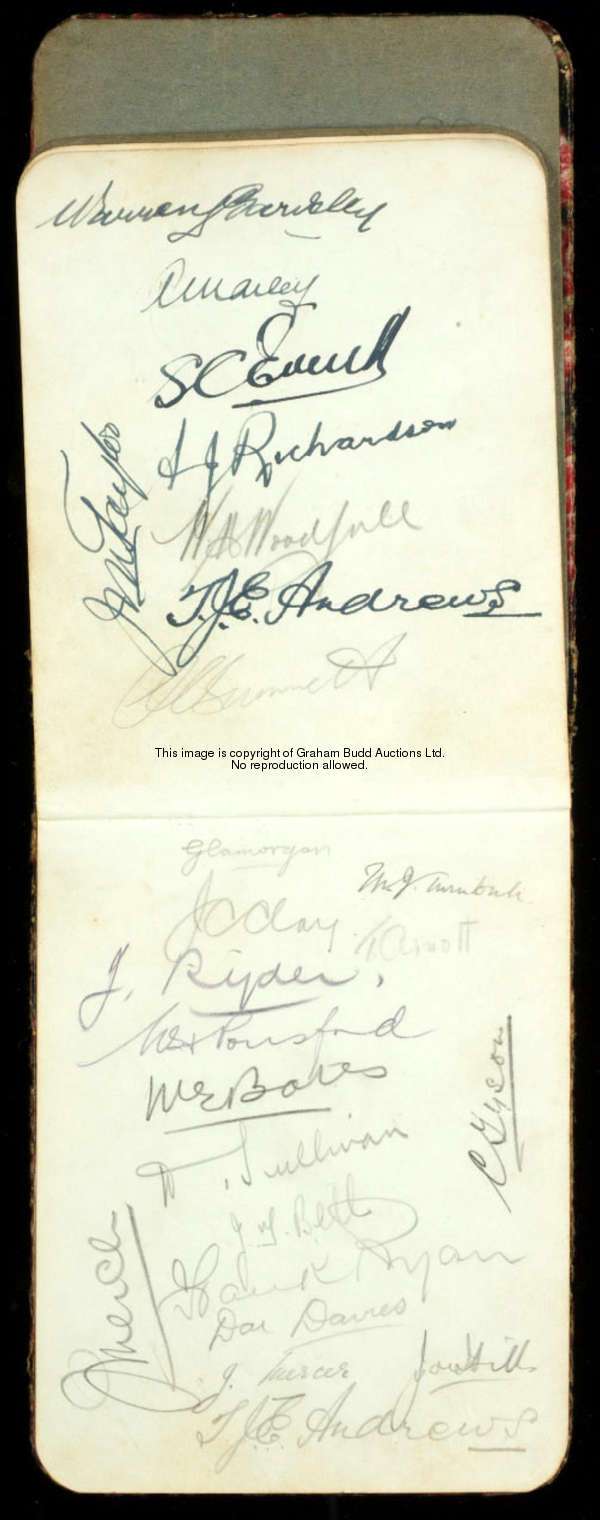 Warren Bardsley
A Mailey
S C Everett
A J Richardson
J M Taylor
W M Woodfull
T.J.E. Andrews
C V Grimmett
This image is copyright of Graham Budd Auctions Ltd.
No reproduction allowed.
Glamorgan
M. J. Turnbull.
J C Clay.
T Arnott
J. Ryder,
W H Ponsford
W E Bates
C Tyson
D. Sullivan
J. T. Bell
Frank Ryan
Dai Davies
J. Mercer
Joe Hills
T.J.E. Andrews